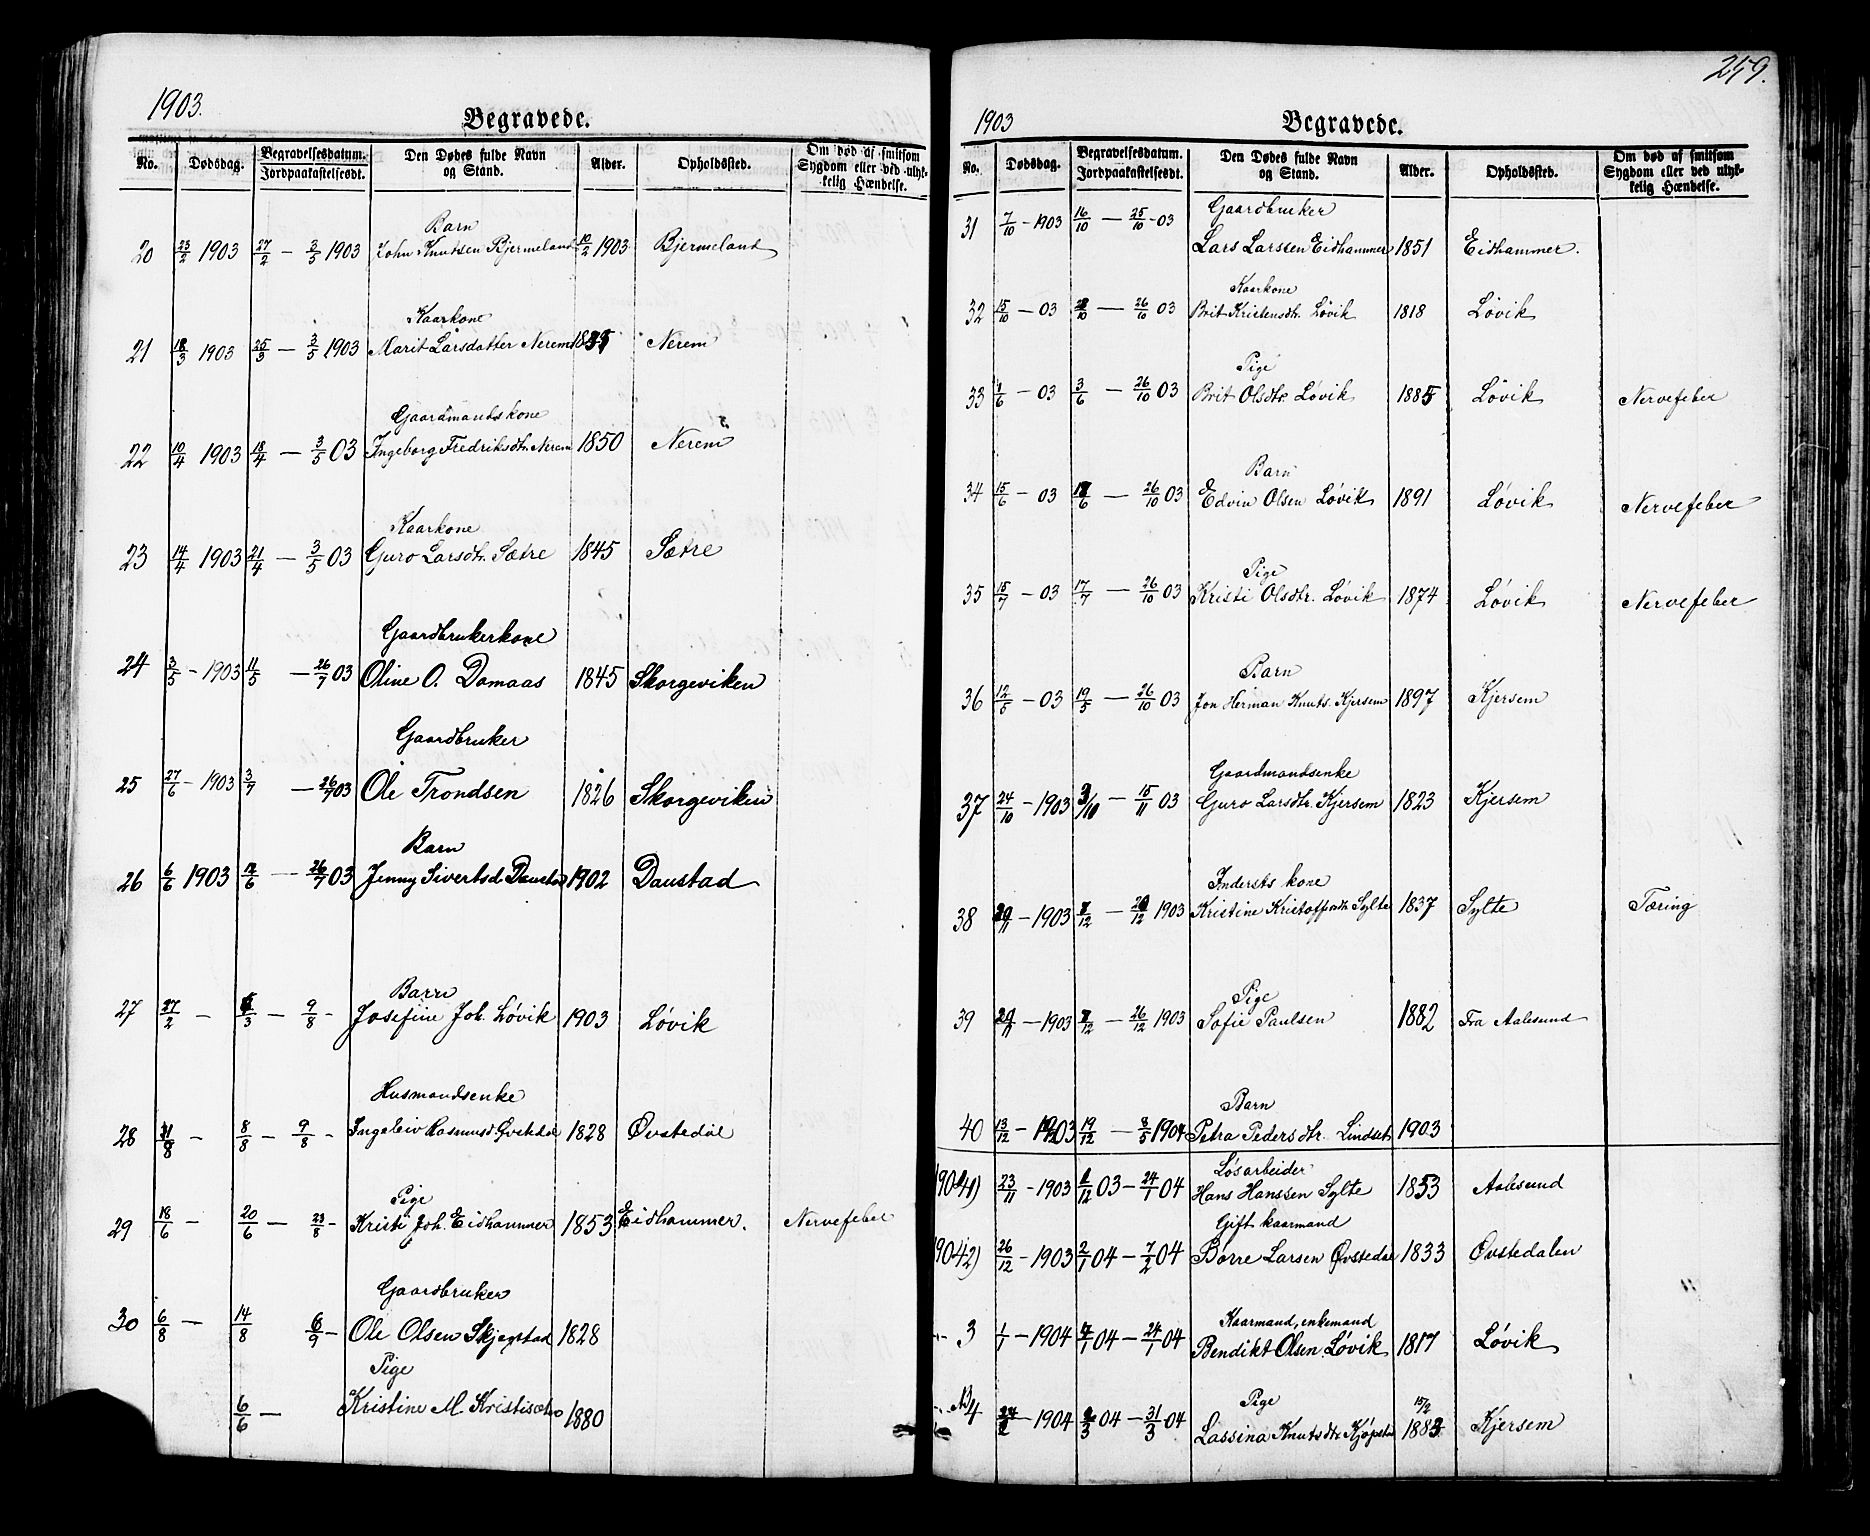 1903.
Begravede.
No. Dødsdag. Begravelsesdatum. Jordpaakastelsesdt. Den Dødes fulde Navn og Stand. Alder. Opholdssted. Om død af smitsom Sygdom eller ved ulykkelig Hændelse.
Barn
20 23/2 1903 27/2 — 3/5 1903 John Knutsen Bjermeland 10/2 1903 Bjermeland
Kaarkone
21 18/3 1903 25/3 — 3/5 1903 Marit Larsdatter Nerem Nerem
Gaardmandskone
22 10/4 1903 18/4 — 3/5 03 Ingeborg Fredriksdtr. Nerem 1850 Nerem
Kaarkone
23 14/4 1903 21/4 — 3/5 03 Guro Larsdtr. Sætre 1845 Sætre
Gaardbrukerkone
24 3/5 - 1903 11/5 — 26/7 03 Oline O. Damaas 1845 Skorgeviken
Gaardbruker
25 27/6 - 1903 3/7 — 26/7 03 Ole Trondsen 1826 Skorgeviken
Barn
26 6/6 1903 /6 — 26/7 03 Jenny Sivertsd. Daustad 1902 Daustad
Barn
27 27/2 — /3 — 9/8 - Josefine Joh. Løvik 1903 Løvik
Husmandsenke
28 — 8/8 — 9/8 - Ingeleiv Rasmusd. 1828 Øvstedøl
Pige
29 18/6 — 20/6 — 23/8 - Kristi Joh. Eidhammer 1853 Eidhammer. Nervefeber
Gaardbruker
30 6/8 — 14/8 6/9 - Ole Olsen Skjegstad 1828
Pige
6/6 — Kristine M. Kristisæter 1880
259.
1903
Begravede.
No. Dødsdag. Begravelsesdatum. Jordpaakastelsesdt. Den Dødes fulde Navn og Stand. Alder. Opholdssted. Om død af smitsom Sygdom eller ved ulykkelig Hændelse.
Gaardbruker
31 7/10 - 1903 16/10 — 25/10 - 03 Lars Larssen Eidhammer 1851 Eidhammer.
Kaarkone
32 15/10 - 03 /10 — 26/10 03 Brit Kristensdtr. Løvik 1818 Løvik
Pige
33 1/6 - 03 3/6 — 26/10 03 Brit Olsdtr. Løvik 1885 Løvik Nervefeber
Barn
34 15/6 - 03 17/6 — 26/10 03 Edvin Olsen Løvik 1891 Løvik Nervefeber
Pige
35 15/7 - 03 17/7 — 26/10 03 Kristi Olsdtr. Løvik 1874 Løvik Nervefeber
Barn
36 12/5 - 03 19/5 — 26/10 03 Jon Herman Knuts. Kjersem 1897 Kjersem
Gaardmandsenke
37 24/10 - 1903 3/10 — 15/11 03 Guro Larsdtr. Kjersem 1823 Kjersem
Indersts kone
38 29/11 - 1903 /12 — 26/12 1903 Kristine Kristoffersdtr. Sylte 1837 Sylte Tæring
Pige
39 29/11 - 1903 /12 — 26/12 1903 Sofie Paulsen 1882 Fra Aalesund
Barn
40 13/12 - 1903 19/12 — 8/5 1904 Petra Pedersdtr. Lindset 1903
Løsarbeider
1904 1) 23/11 - 1903 /12 03 — 24/1 04 Hans Hanssen Sylte 1853 Aalesund
Gift kaarmand
1904 2) 26/12 - 1903 2/1 04 — 7/2 04 Børre Larsen Øvstedal 1833 Øvstedalen
Kaarmand, enkemand
- 3 1/1 - 1904 /1 04 — 24/1 04 Bendikt Olsen Løvik 1817 Løvik
Pige 15/2
- 4 24/2 - 1904 /3 04 — 31/3 04 Lassina Knutsdtr. 1883 Kjersem